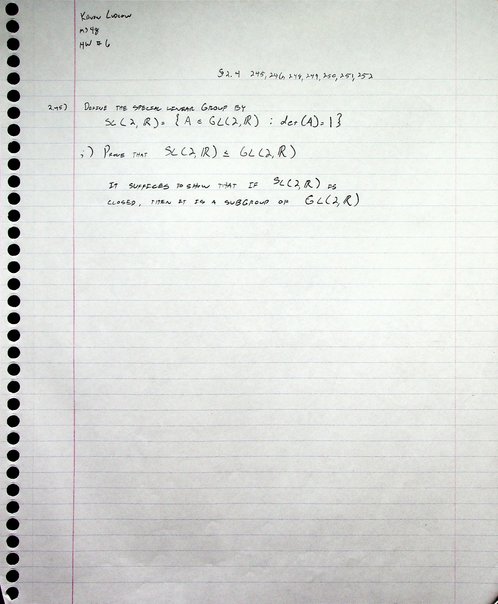 Kevin Ludlow
M348
HW # 6
§ 2.4 245, 246, 248, 249, 250, 251, 252
2.45) Define the special linear group by
SL(2, ℝ) = { A ∈ GL(2, ℝ) : det(A) = 1 }
i) Prove that SL(2, ℝ) ≤ GL(2, ℝ)
It suffices to show that if SL(2, ℝ) is
closed, then it is a subgroup of GL(2, ℝ)